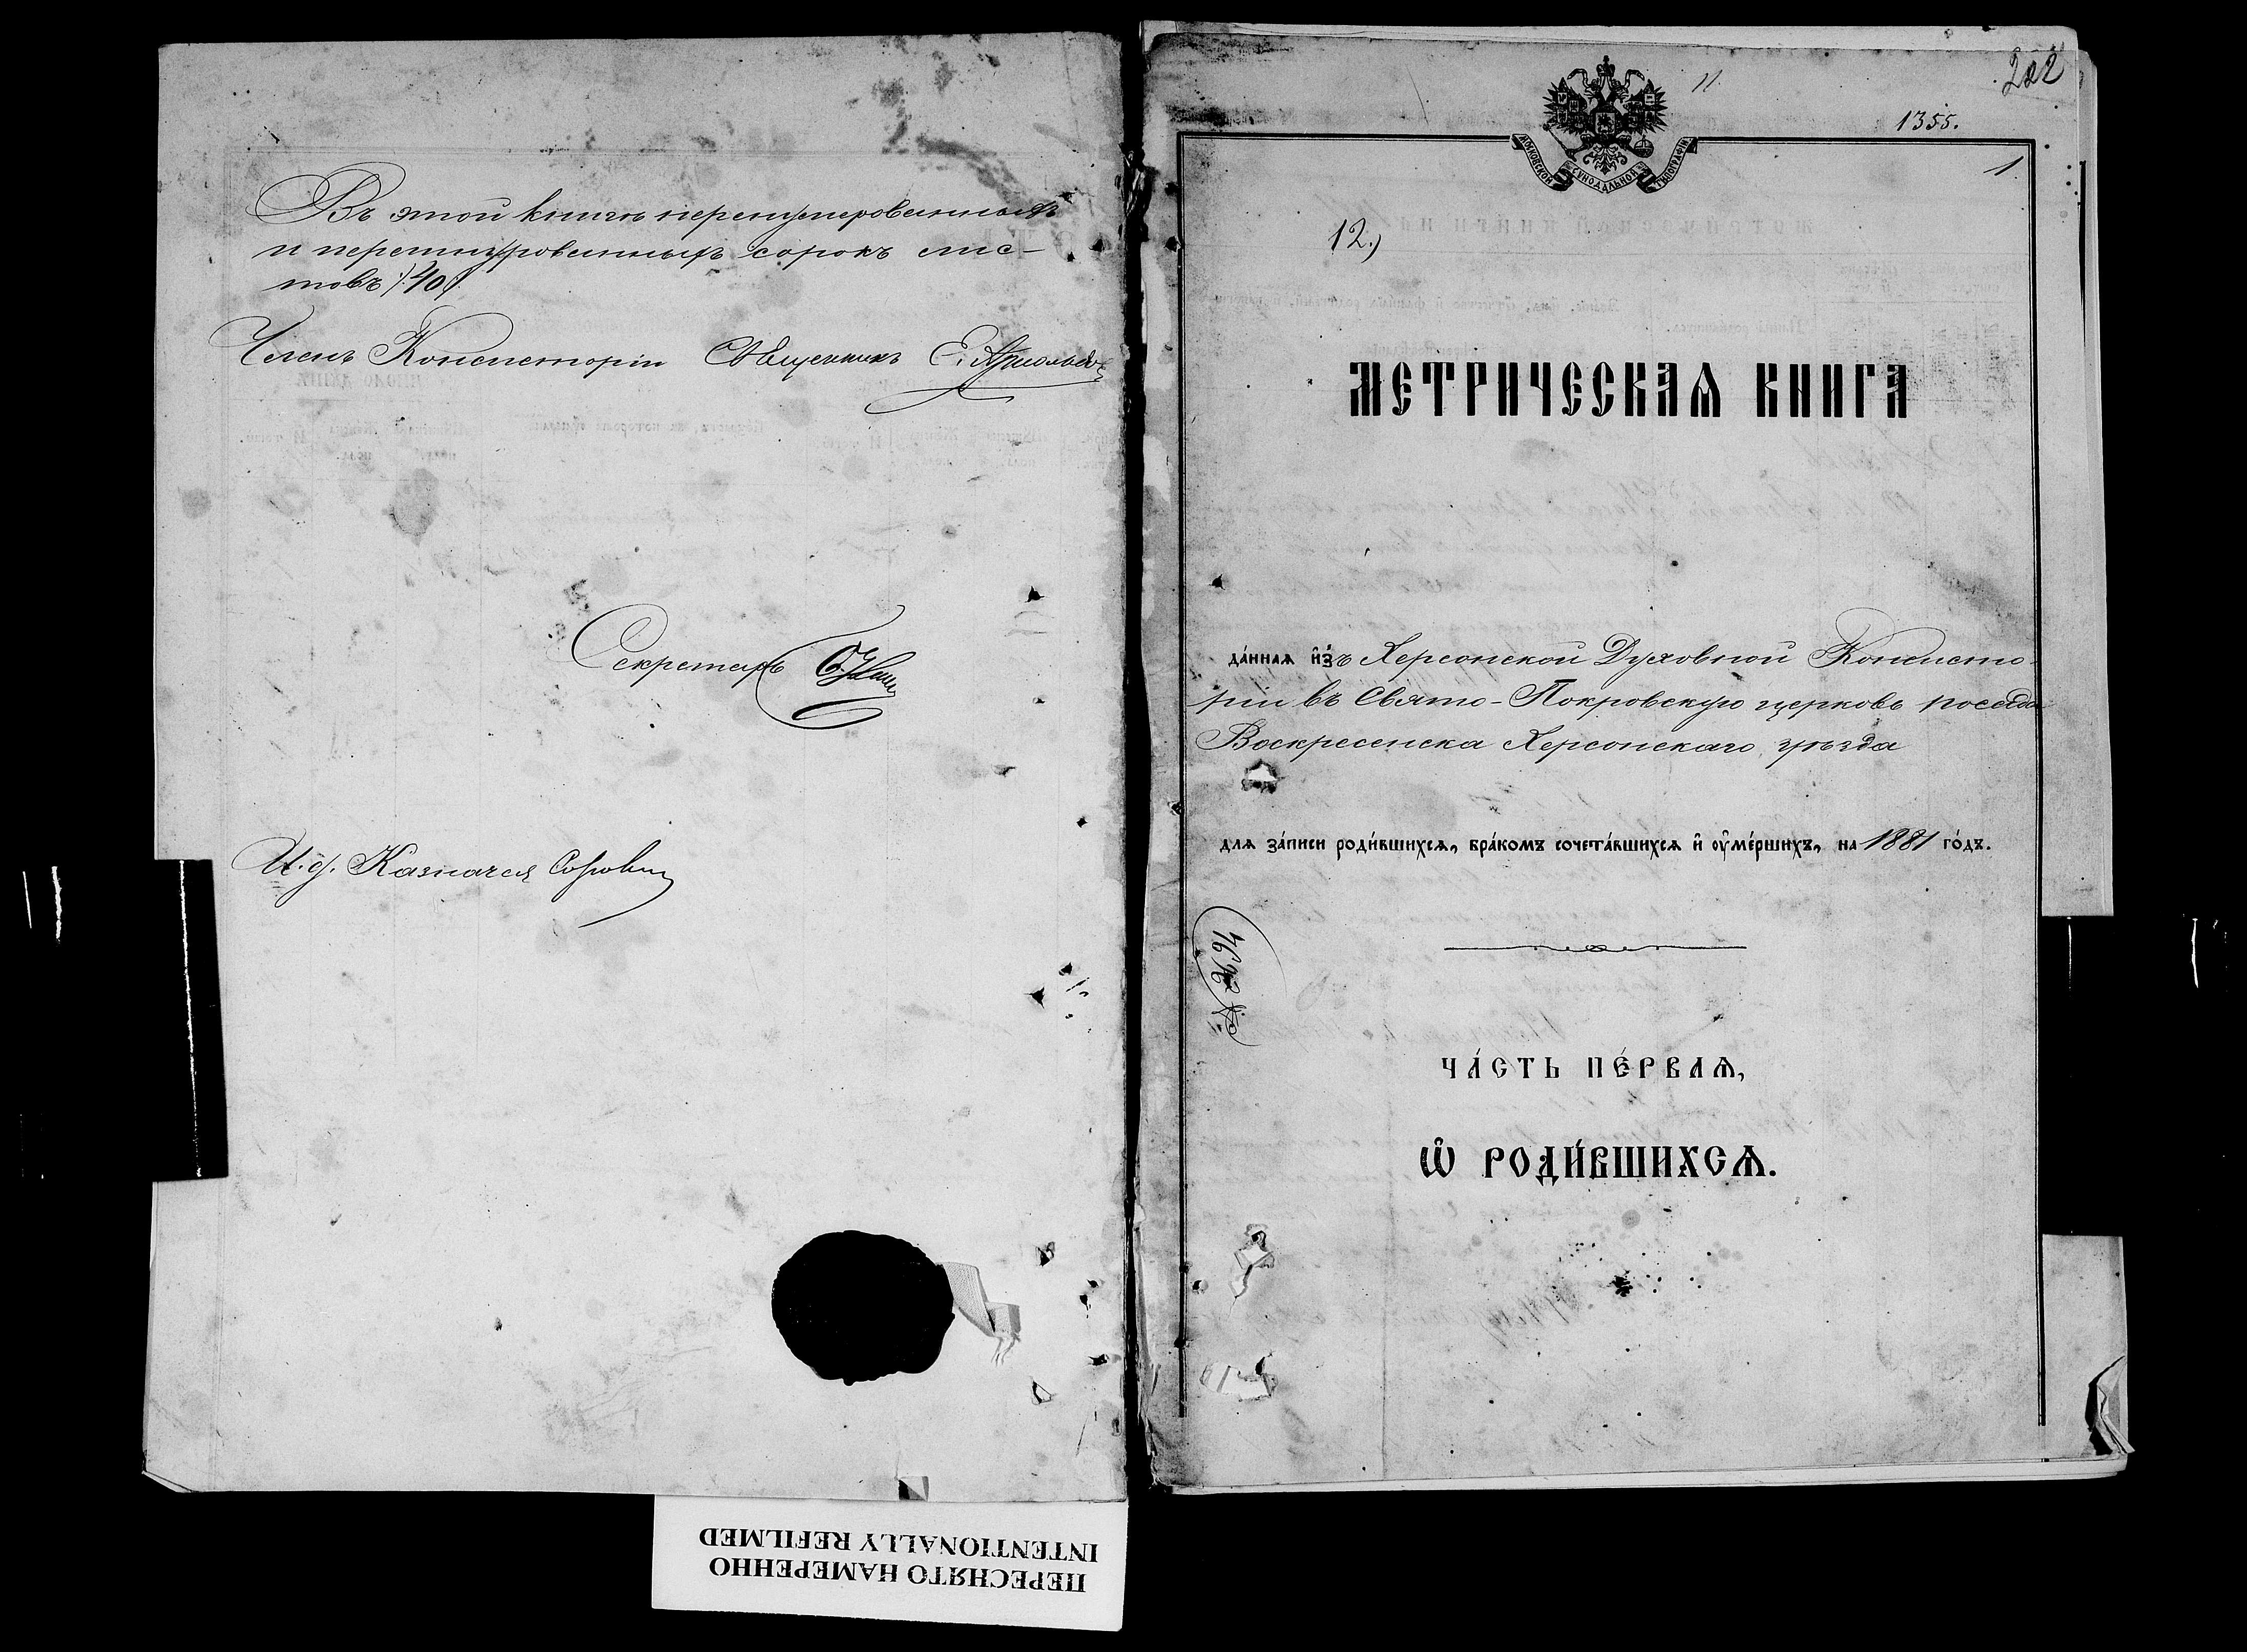 Въ этой книгѣ перенумерованныхъ
и перешнурованныхъ сорокъ лис-
товъ /40/.
Членъ Консисторіи Священникъ Е.
Секретарь
И. д. Казначея
222
11
1355.
1
МОСКОВСКОЙ СѴНОДАЛЬНОЙ ТИПОГРАФІИ
12.)
МЕТРИЧЕСКАѦ КНИГА
да́нная и҆́зъ Херсонской Духовной Консисто-
ріи въ Свято-Покровскую церковь посада
Воскресенска Херсонскаго уѣзда
для за́писи роди́вшихсѧ, бра́комъ сочета́вшихсѧ и҆ ᲂу҆ме́ршихъ, на 1881 го́дъ.
ЧА́СТЬ ПЕ́РВАѦ,
Ѽ РОДИ́ВШИХСѦ.
ПЕРЕСНЯТО НАМЕРЕННО
INTENTIONALLY REFILMED